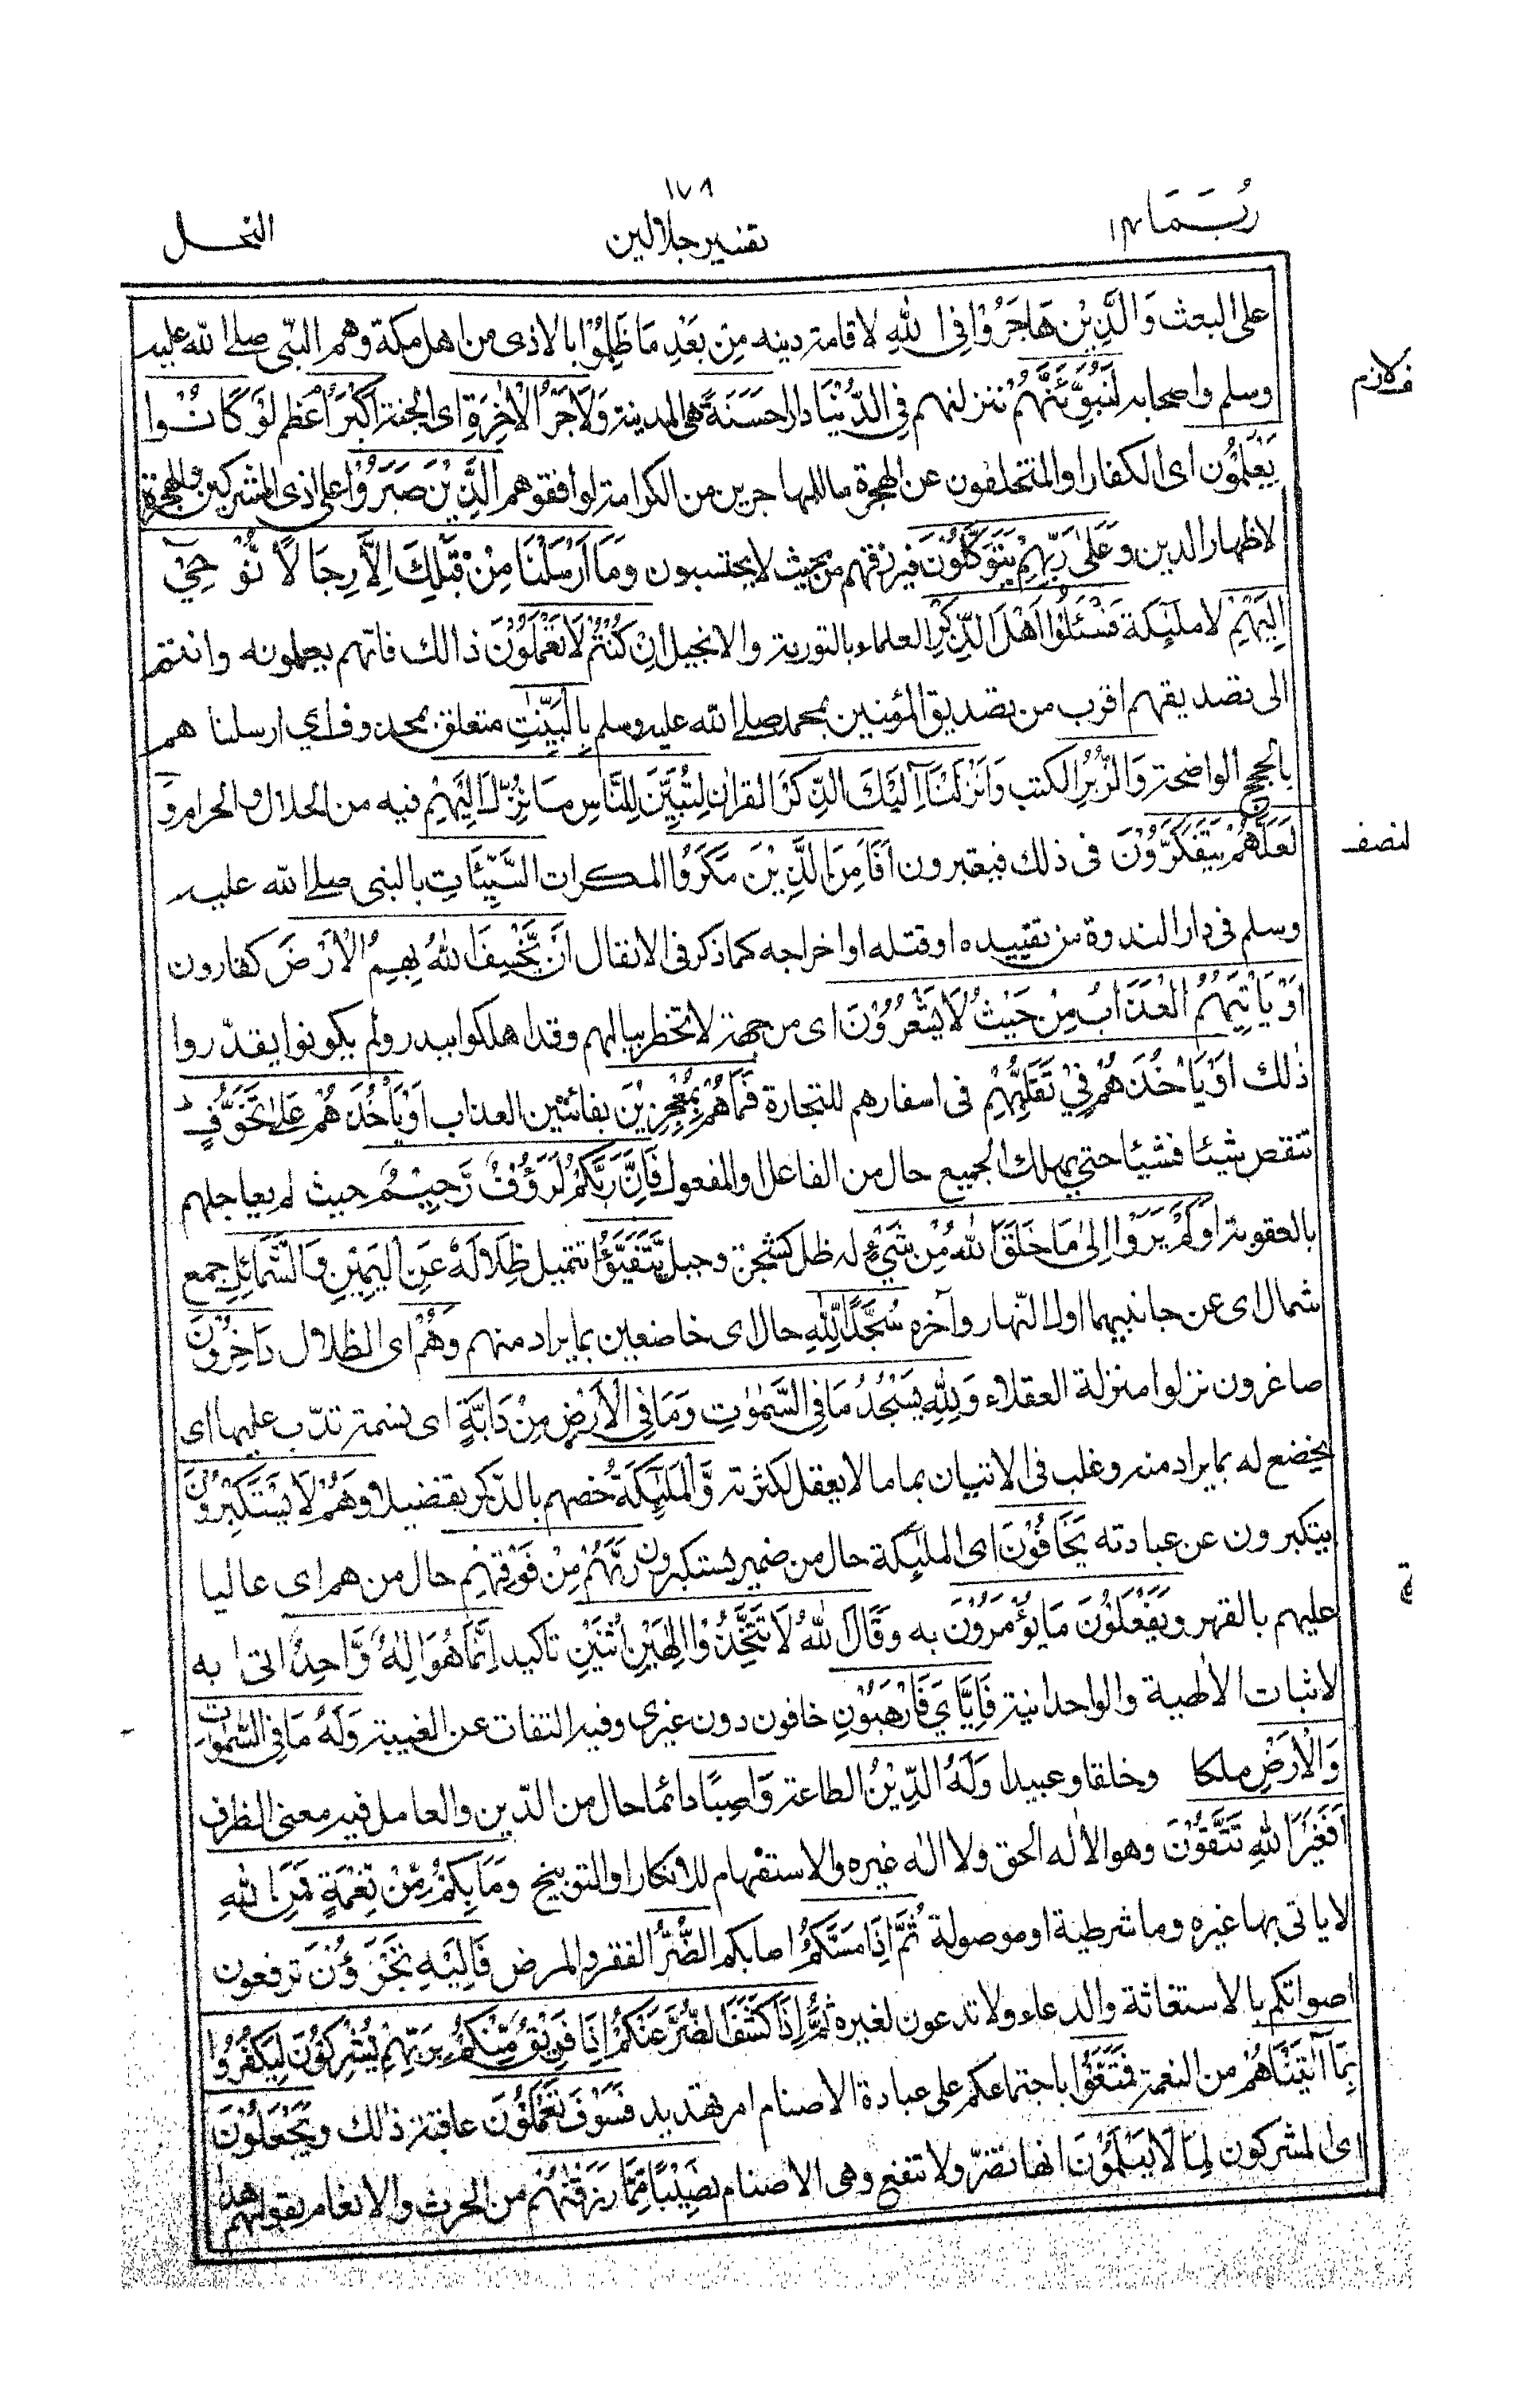 ١٧٨
رُبَمَا ١٤
تفسير جلالين
النحل
على البعث وَالَّذِيْنَ هَاجَرُوْا فِى اللهِ لاقامة دينه مِنْ بَعْدِ مَا ظُلِمُوْا بالاذى من اهل مكة وهم النبى صلے الله عليه
وسلم واصحابه لَنُبَوِّئَنَّهُمْ ننزلنهم فِى الدُّنْيَا دارا حَسَنَةً هى المدينة وَلَاَجْرُ الْاٰخِرَةِ اى الجنة اَكْبَرُ اعظم لَوْ كَانُوْا
يَعْلَمُوْنَ اى الكفار او المتخلفون عن الهجرة ما للمهاجرين من الكرامة لوافقوهم الَّذِيْنَ صَبَرُوْا على اذى المشركين والهجرة
لاظهار الدين وَعَلٰى رَبِّهِمْ يَتَوَكَّلُوْنَ فيرزقهم من حيث لا يحتسبون وَمَا اَرْسَلْنَا مِنْ قَبْلِكَ اِلَّا رِجَالًا نُّوْحِيْ
اِلَيْهِمْ لا ملئِكة فَسْئَلُوْا اَهْلَ الذِّكْرِ العلماء بالتورية والانجيل اِنْ كُنْتُمْ لَا تَعْلَمُوْنَ ذالك فانهم يعلمونه وانتم
الى تصديقهم اقرب من تصديق المؤمنين بمحمد صلے الله عليه وسلم بِالْبَيِّنٰتِ متعلق بمحذوف اى ارسلناهم
بالحجج الواضحة وَالزُّبُرِ الكتب وَاَنْزَلْنَآ اِلَيْكَ الذِّكْرَ القران لِتُبَيِّنَ لِلنَّاسِ مَا نُزِّلَ اِلَيْهِمْ فيه من الحلال والحرام وَ
لَعَلَّهُمْ يَتَفَكَّرُوْنَ فى ذلك فيعتبرون اَفَاَمِنَ الَّذِيْنَ مَكَرُوا المكرات السَّيِّئَاتِ بالنبى صلے الله عليه
وسلم فى دار الندوة من تقييده او قتله او اخراجه كما ذكر فى الانفال اَنْ يَّخْسِفَ اللهُ بِهِمُ الْاَرْضَ كقارون
اَوْ يَاْتِيَهُمُ الْعَذَابُ مِنْ حَيْثُ لَا يَشْعُرُوْنَ اى من جهة لا تخطر ببالهم وقد اهلكوا ببدر ولم يكونوا يقدّروا
ذٰلك اَوْ يَاْخُذَهُمْ فِيْ تَقَلُّبِهِمْ فى اسفارهم للتجارة فَمَا هُمْ بِمُعْجِزِيْنَ بفائتين العذاب اَوْ يَاْخُذَهُمْ عَلٰى تَخَوُّفٍ
تنقص شيئا فشيئا حتى يهلك الجميع حال من الفاعل او المفعول فَاِنَّ رَبَّكُمْ لَرَؤُفٌ رَّحِيْمٌ حيث لم يعاجلهم
بالعقوبة اَوَلَمْ يَرَوْا اِلٰى مَا خَلَقَ اللهُ مِنْ شَيْءٍ له ظل كشجرة وجبل يَّتَفَيَّؤُا تتميل ظِلَالُهٗ عَنِ الْيَمِيْنِ وَالشَّمَائِلِ جمع
شمال اى عن جانبيهما اول النّهار وآخره سُجَّدًا لِّلّٰهِ حال اى خاضعين بما يراد منهم وَهُمْ اى الظلال دَاخِرُوْنَ
صاغرون نزلوا منزلة العقلاء وَلِلّٰهِ يَسْجُدُ مَا فِى السَّمٰوٰتِ وَمَا فِى الْاَرْضِ مِنْ دَابَّةٍ اى نسمة تدبّ عليها اى
يخضع له بما يراد منه وغلب فى الاتيان بما ما لا يعقل لكثرته وَّالْمَلٰٓئِكَةُ خصهم بالذكر تفضيلا وَهُمْ لَا يَسْتَكْبِرُوْنَ
يتكبرون عن عبادته يَخَافُوْنَ اى الملٰٓئكة حال من ضمير يستكبرون رَبَّهُمْ مِنْ فَوْقِهِمْ حال من هم اى عاليا
عليهم بالقهر وَيَفْعَلُوْنَ مَا يُؤْمَرُوْنَ به وَقَالَ اللهُ لَا تَتَّخِذُوْا اِلٰهَيْنِ اثْنَيْنِ تاكيد اِنَّمَا هُوَ اِلٰهٌ وَّاحِدٌ اتى به
لاثبات الالٰهية والواحدانية فَاِيَّايَ فَارْهَبُوْنِ خافون دون غيرى وفيه التفات عن الغيبة وَلَهٗ مَا فِى السَّمٰوٰتِ
وَالْاَرْضِ ملكا وخلقا وعبيدا وَلَهُ الدِّيْنُ الطاعة وَاصِبًا دائما حال من الدّين والعامل فيه معنى الظرف
اَفَغَيْرَ اللهِ تَتَّقُوْنَ وهو الاله الحق ولا اله غيره والاستفهام للانكار او التوبيخ وَمَا بِكُمْ مِّنْ نِّعْمَةٍ فَمِنَ اللهِ
لا ياتى بها غيره وما شرطية او موصولة ثُمَّ اِذَا مَسَّكُمُ اصابكم الضُّرُّ الفقر والمرض فَاِلَيْهِ تَجْئَرُوْنَ ترفعون
اصواتكم بالاستغاثة والدعاء ولا تدعون لغيره ثُمَّ اِذَا كَشَفَ الضُّرَّ عَنْكُمْ اِذَا فَرِيْقٌ مِّنْكُمْ بِرَبِّهِمْ يُشْرِكُوْنَ لِيَكْفُرُوْا
بِمَآ اٰتَيْنَاهُمْ من النعمة فَتَمَتَّعُوْا باجتماعكم على عبادة الاصنام امر تهديد فَسَوْفَ تَعْلَمُوْنَ عاقبة ذٰلك وَيَجْعَلُوْنَ
اى المشركون لِمَا لَا يَعْلَمُوْنَ انها تضرّ ولا تنفع وهى الاصنام نَصِيْبًا مِّمَّا رَزَقْنٰهُمْ من الحرث والانعام بقولهم هذا
لنصف